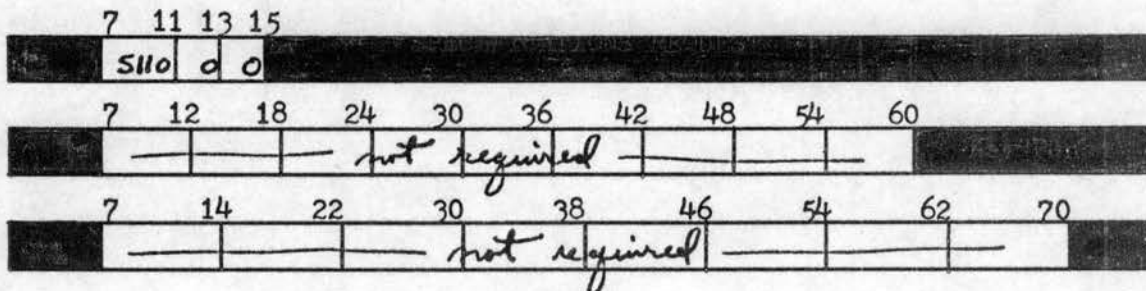 7 11 13 15
5110 0 0
7 12 18 24 30 36 42 48 54 60
not required
7 14 22 30 38 46 54 62 70
not required